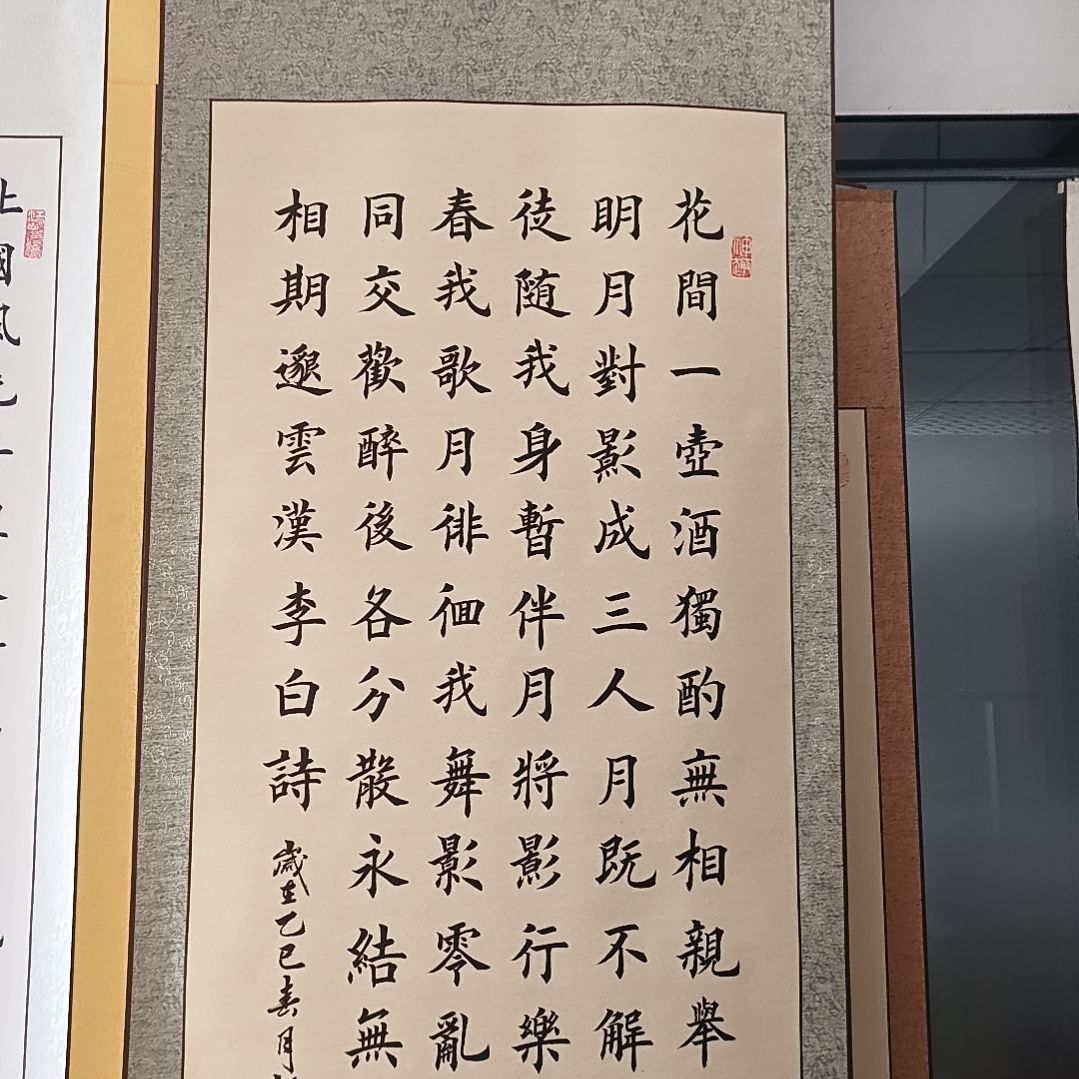 花間一壺酒獨酌無相親舉
明月對影成三人月既不解
徒随我身暫伴月將影行樂
春我歌月徘徊我舞影零亂
同交歡醉後各分散永結無
相期邈雲漢李白詩
歲在乙巳春月
國風光